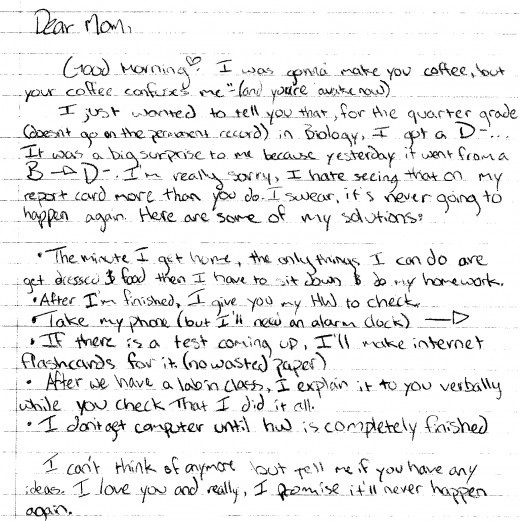 Dear Mom,
Good Morning♡! I was gonna make you coffee, but
your coffee confuses me (and you're awake now)
I just wanted to tell you that, for the quarter grade
(doesnt go on the permanent record) in Biology, I got a D-...
It was a big surprise to me because yesterday it went from a
B → D-. I'm really sorry, I hate seeing that on my
report card more than you do. I swear, it's never going to
happen again. Here are some of my solutions:
• The minute I get home, the only things I can do are
get dressed & food then I have to sit down & do my homework.
• After I'm finished, I give you my HW to check
• Take my phone (but I'll need an alarm clock) →
• If there is a test coming up, I'll make internet
flashcards for it (no wasted paper)
• After we have a lab in class, I explain it to you verbally
while you check that I did it all.
• I don't get computer until hw is completely finished
I can't think of anymore but tell me if you have any
ideas. I love you and really, I promise it'll never happen
again.